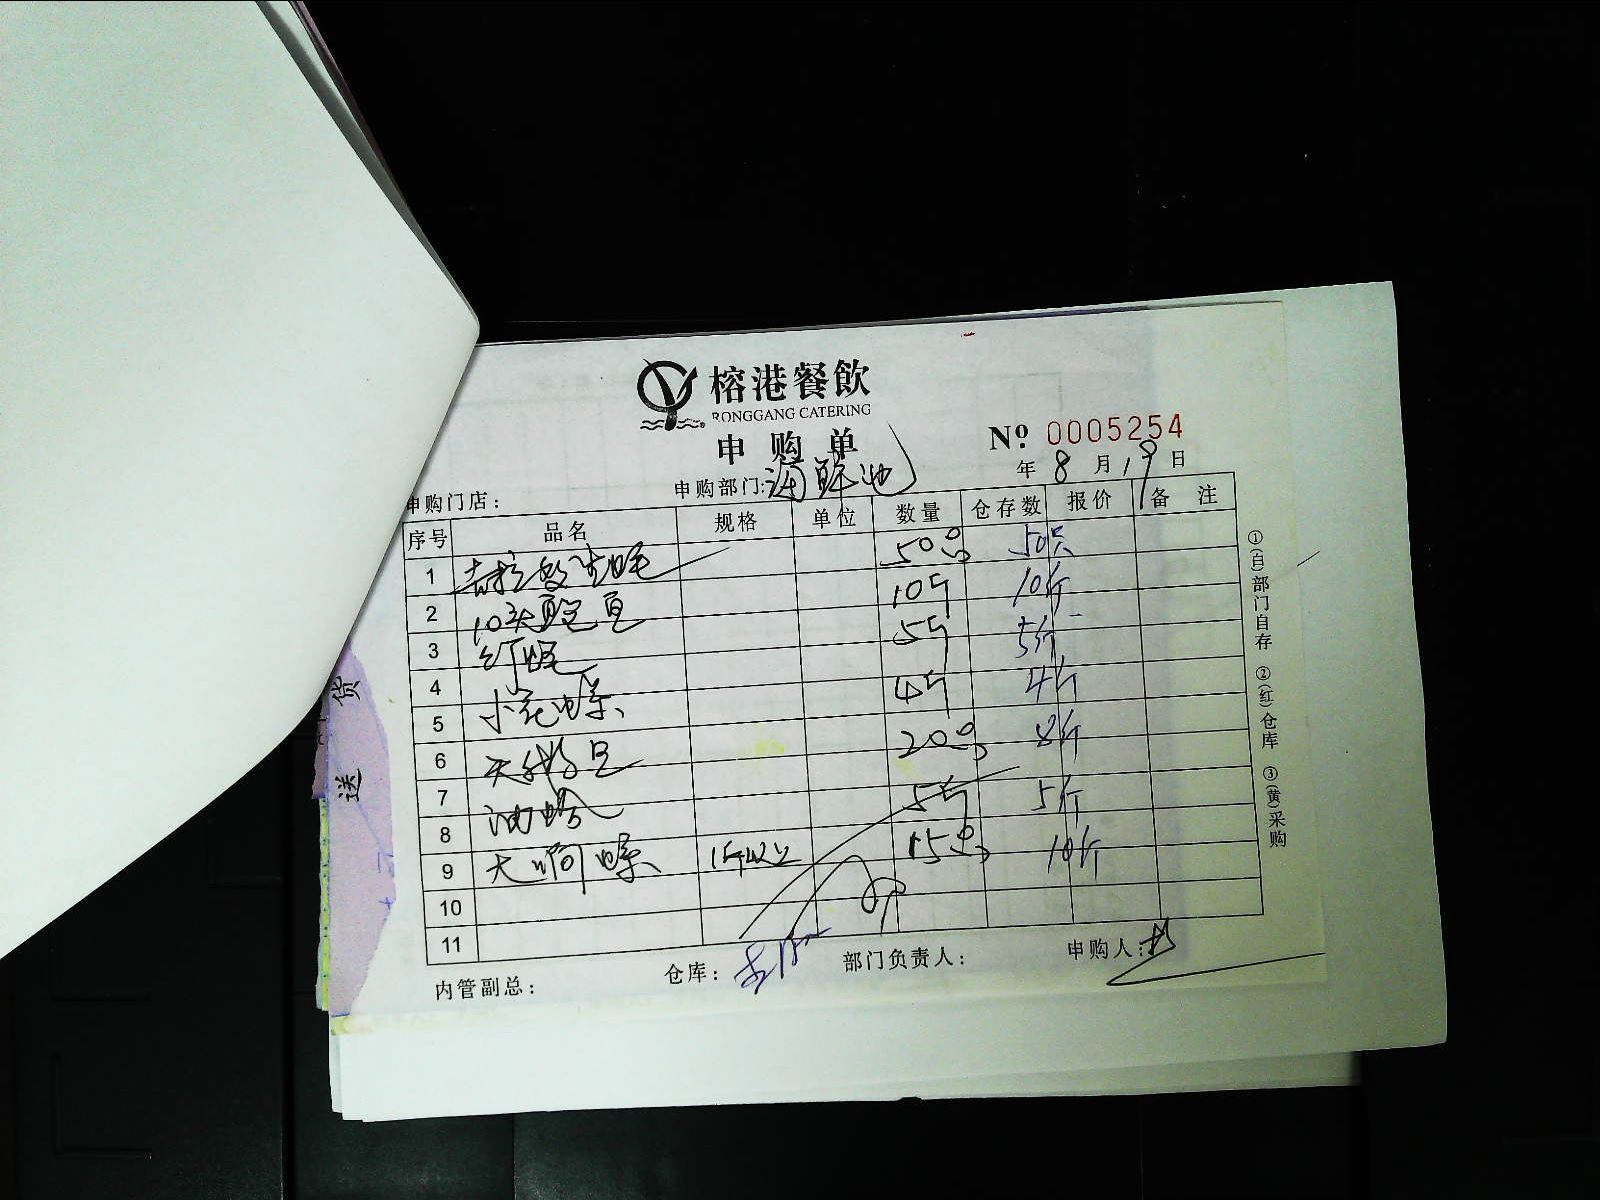 榕港餐飲
RONGGANG CATERING
申购单
№ 0005254
年 8 月 19 日
申购门店： 申购部门：海鲜池
序号 品名 规格 单位 数量 仓存数 报价 备注
1 吉拉多生蚝 50只 50只
2 10头鲍鱼 10斤 10斤
3 5斤 5斤
4 小花螺 4斤 4斤
5
6 20只 8斤
7 油蛤 5斤 5斤
8 大响螺 1斤以上 15只 10斤
9
10
11
内管副总： 仓库： 部门负责人： 申购人：
①(白)部门自存 ②(红)仓库 ③(黄)采购
送 货